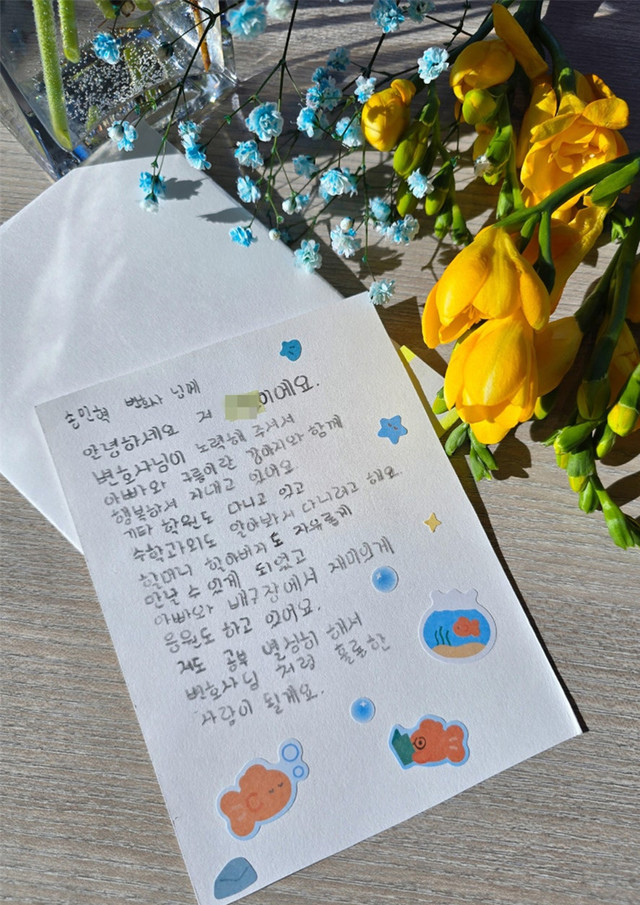 송민혁 변호사 님께
안녕하세요 저 이에요.
변호사님이 노력해 주셔서
아빠와 구름이란 강아지와 함께
행복하게 지내고 있어요
기타 학원도 다니고 있고
수학과외도 알아봐서 다니려고 해요.
할머니 할아버지도 자유롭게
만날 수 있게 되었고
아빠와 배구장에서 재미있게
응원도 하고 있어요.
저도 공부 열심히 해서
변호사님 처럼 훌륭한
사람이 될게요.